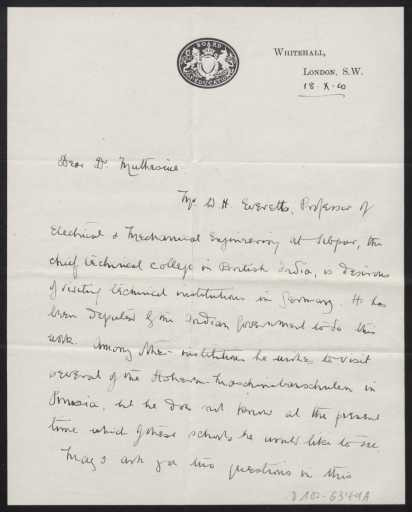 BOARD OF EDUCATION
WHITEHALL,
LONDON, S.W.
18. X. 00
Dear Dr. Muthesius
Mr W H Everett, Professor of
Electrical & Mechanical Engineering at Sibpur, the
chief technical college in British India, is desirous
of visiting technical institutions in Germany. He has
been deputed by the Indian Government to do this
work. Among other institutions he wishes to visit
several of the Höheren Maschinenbauschulen in
Prussia, but he does not know at the present
time which of these schools he would like to see.
May I ask you two questions in this